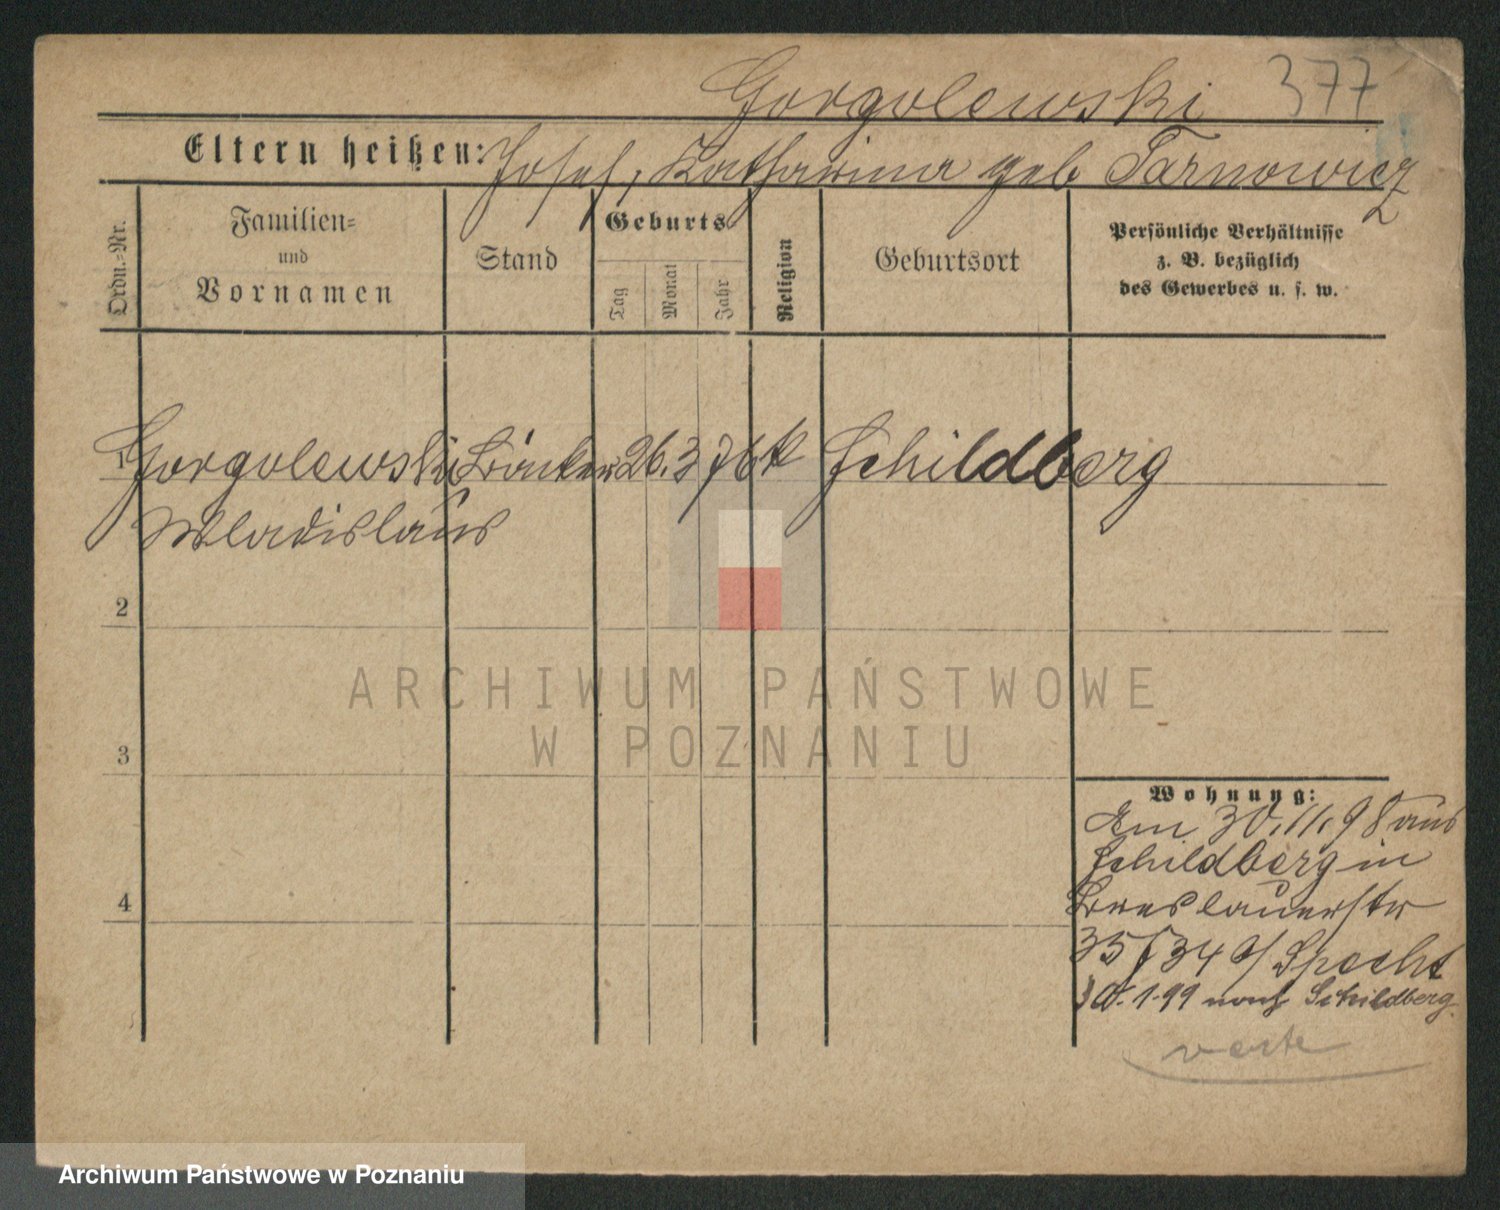 Gorgolewski 377
Eltern heißen: Josef, Katharina geb Tarnowicz
Ordn.=Nr.
Familien=
und
Vornamen
Stand
Geburts
Tag
Monat
Jahr
Religion
Geburtsort
Persönliche Verhältnisse
z. B. bezüglich
des Gewerbes u. s. w.
1 Gorgolewski 26. 3 76 k Schildberg
Wladislaus
2
ARCHIWUM PAŃSTWOWE
W POZNANIU
3
Wohnung:
Am 30.11.98 aus
Schildberg in
Breslauerstr
35/34 b/ Specht
10.1.99 nach Schildberg.
4
verte
Archiwum Państwowe w Poznaniu